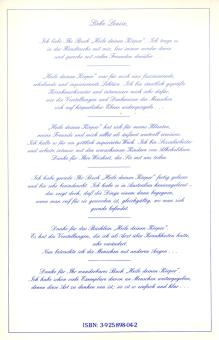 Liebe Louise,
Ich liebe Ihr Buch „Heile deinen Körper“. Ich trage es
in der Handtasche mit mir, lese immer wieder darin
und spreche mit vielen Freunden darüber.
„Heile deinen Körper“ war für mich eine faszinierende,
erhebende und inspirierende Lektüre. Ich bin staatlich geprüfte
Krankenschwester und interessiere mich sehr dafür,
wie die Vorstellungen und Denkweisen des Menschen
sich auf körperlicher Ebene widerspiegeln . . .
„Heile deinen Körper“ hat sich für meine Klienten,
meine Freunde und mich selbst als äußerst wertvoll erwiesen.
Ich halte es für ein göttlich inspiriertes Werk. Ich bin Sozialarbeiter
und arbeite intensiv mit den erwachsenen Kindern von Alkoholikern.
Danke für Ihre Weisheit, die Sie mit uns teilen.
Ich habe gerade Ihr Buch „Heile deinen Körper“ fertig gelesen
und bin sehr beeindruckt. Ich habe es in Australien kennengelernt -
das zeigt doch, daß die Dinge einem dann begegnen,
wenn man reif für sie geworden ist, gleichgültig, wo man sich
gerade befindet.
Danke für das Büchlein „Heile deinen Körper“.
Es hat die Vorstellungen, die ich als Arzt über Krankheiten hatte,
sehr verändert.
Nun betrachte ich die Menschen mit anderen Augen . . .
Danke für Ihr wunderbares Buch „Heile deinen Körper“.
Ich habe schon viele Exemplare davon an Menschen weitergegeben,
denen diese Art zu denken neu ist; sie ist so einfach und klar . . .
ISBN: 3-925898-04-2